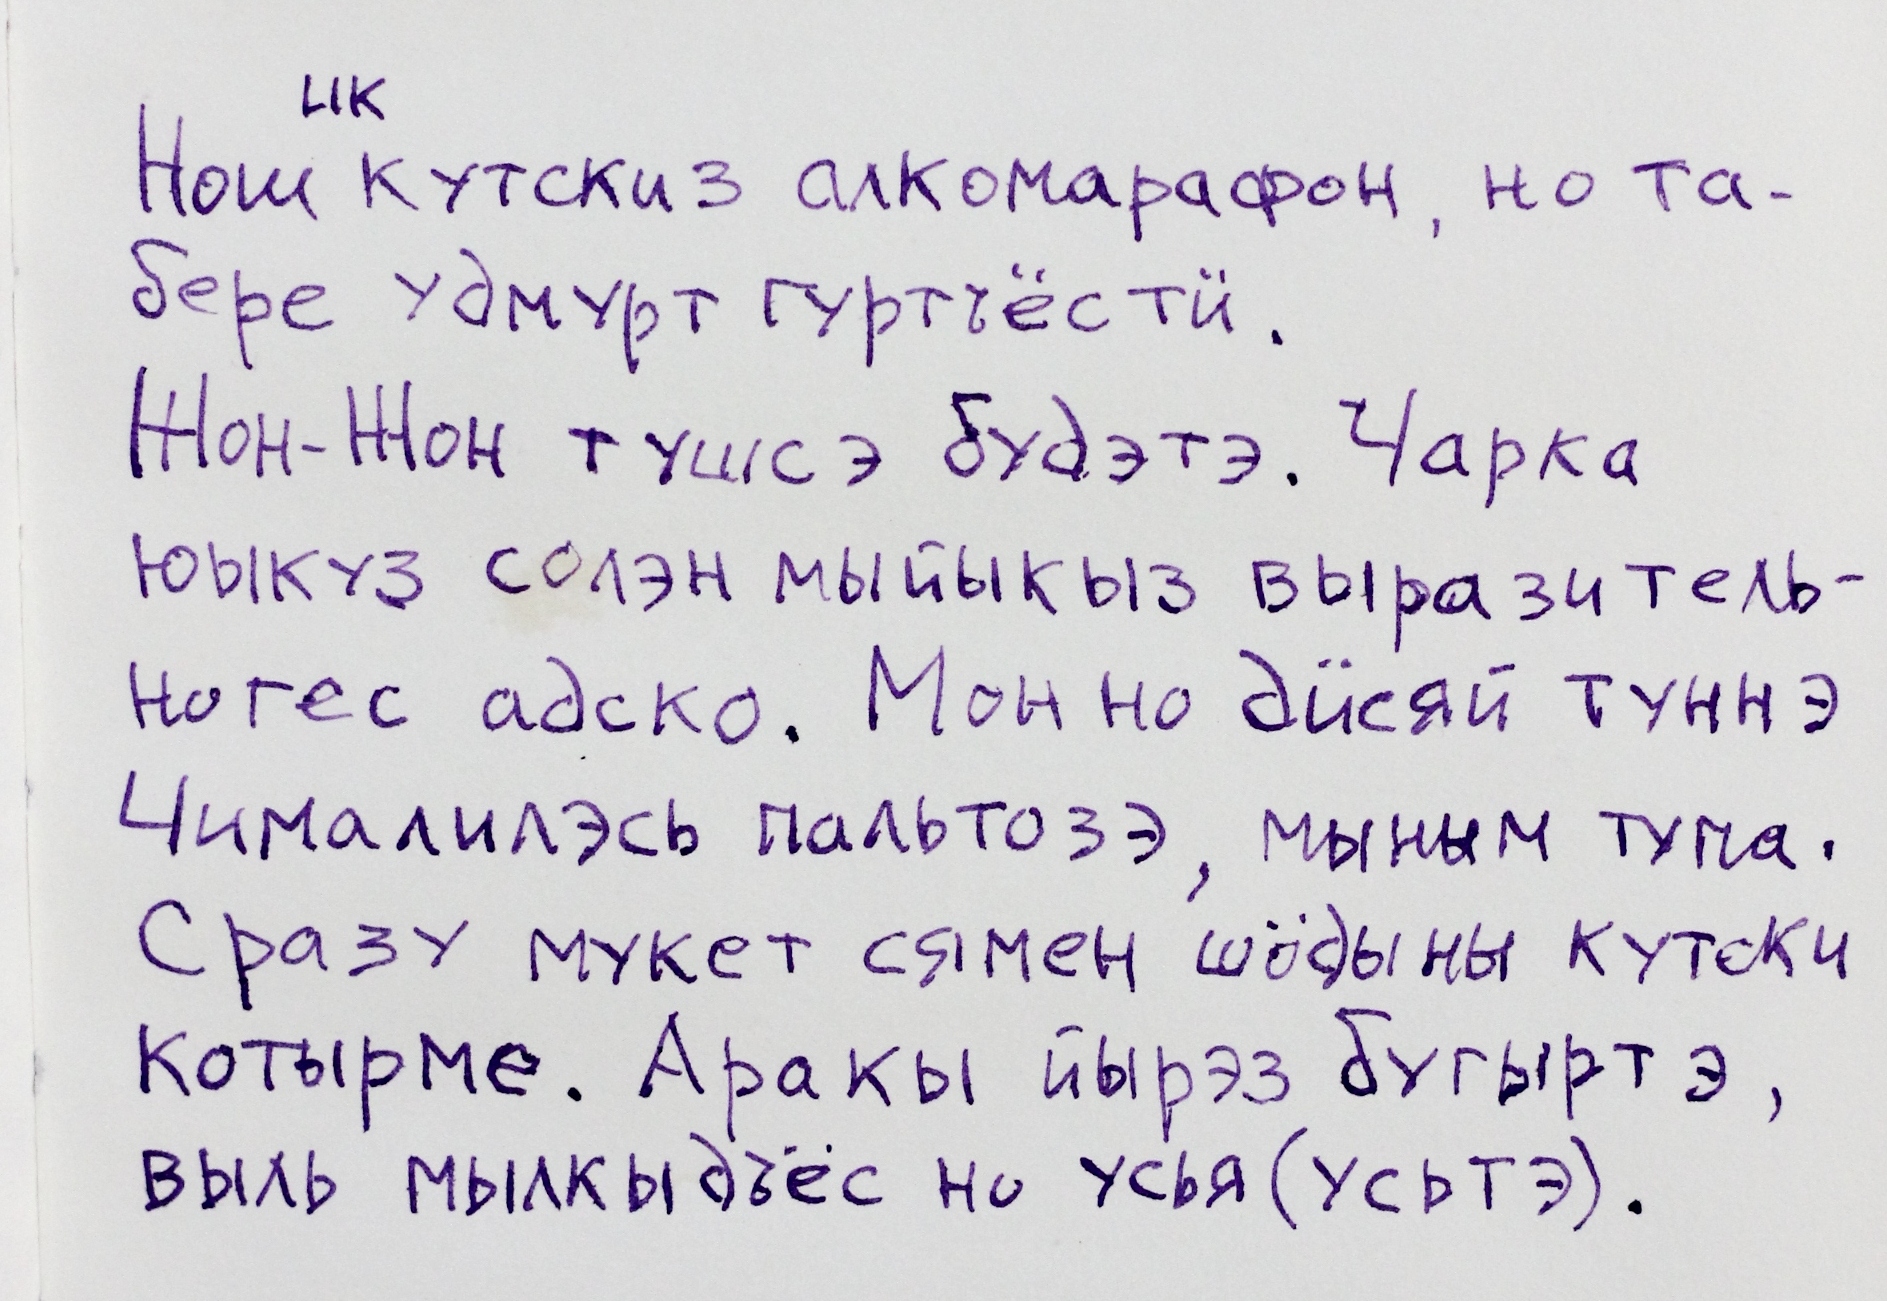 ик
Нош кутскиз алкомарафон, но та-
бере удмурт гуртъёстӥ.
Жон-Жон тушсэ будэтэ. Чарка
юыкуз солэн мыйыкыз выразитель-
ногес адско. Мон но дӥсяй туннэ
Чималилэсь пальтозэ, мыным тупа.
Сразу мукет сямен шӧдыны кутски
котырме. Аракы йырэз бугыртэ,
выль мылкыдъёс но усья (усьтэ).